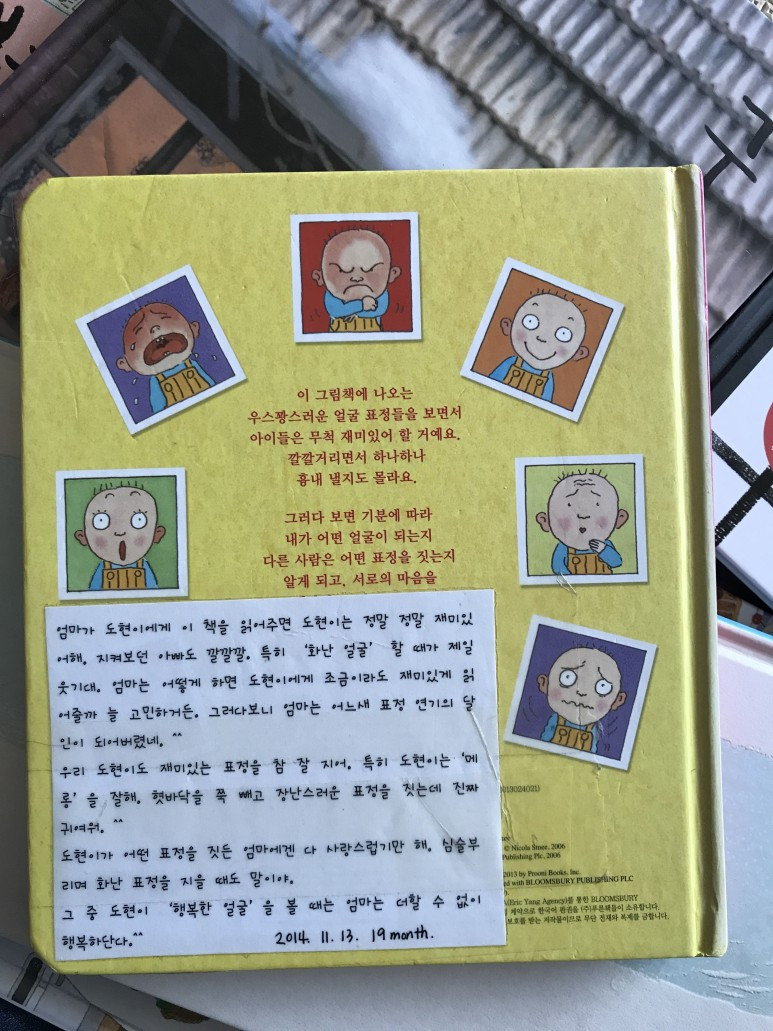 이 그림책에 나오는
우스꽝스러운 얼굴 표정들을 보면서
아이들은 무척 재미있어 할 거예요.
깔깔거리면서 하나하나
흉내 낼지도 몰라요.
그러다 보면 기분에 따라
내가 어떤 얼굴이 되는지
다른 사람은 어떤 표정을 짓는지
알게 되고, 서로의 마음을
엄마가 도현이에게 이 책을 읽어주면 도현이는 정말 정말 재미있
어해. 지켜보던 아빠도 깔깔깔. 특히 '화난 얼굴' 할 때가 제일
웃기대. 엄마는 어떻게 하면 도현이에게 조금이라도 재미있게 읽
어줄까 늘 고민하거든. 그러다보니 엄마는 어느새 표정 연기의 달
인이 되어버렸네. ^^
우리 도현이도 재미있는 표정을 참 잘 지어. 특히 도현이는 '메
롱' 을 잘해. 혓바닥을 쭉 빼고 장난스러운 표정을 짓는데 진짜
귀여워. ^^
도현이가 어떤 표정을 짓든 엄마에겐 다 사랑스럽기만 해. 심술부
리며 화난 표정을 지을 때도 말이야.
그 중 도현이 '행복한 얼굴'을 볼 때는 엄마는 더할 수 없이
행복하단다.^^
2014. 11. 13. 19 month.
013024021)
© Nicola Smee, 2006
Publishing Plc, 2006
2013 by Prooni Books, Inc.
ed with BLOOMSBURY PUBLISHING PLC
(Eric Yang Agency)를 통한 BLOOMSBURY
계약으로 한국어 판권을 (주)푸른퀘들이 소유합니다.
보호를 받는 저작물이므로 무단 전재와 복제를 금합니다.